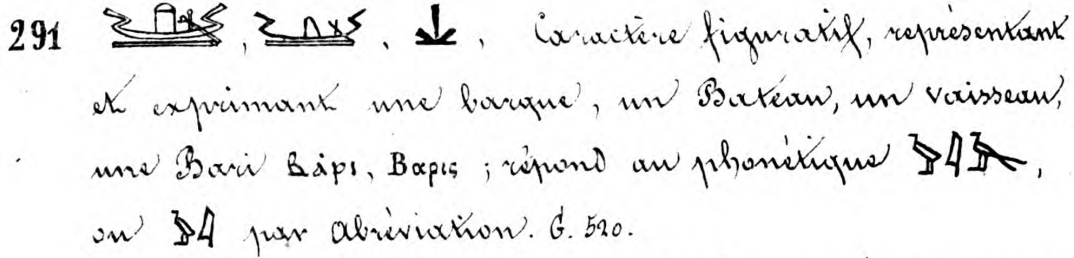 291 , , , Caractère figuratif, représentant
et exprimant une barque, un Bateau, un vaisseau,
une Bari Ⲃⲁⲣⲓ, Βαρις ; répond au phonétique ,
ou par Abréviation. G. 520.